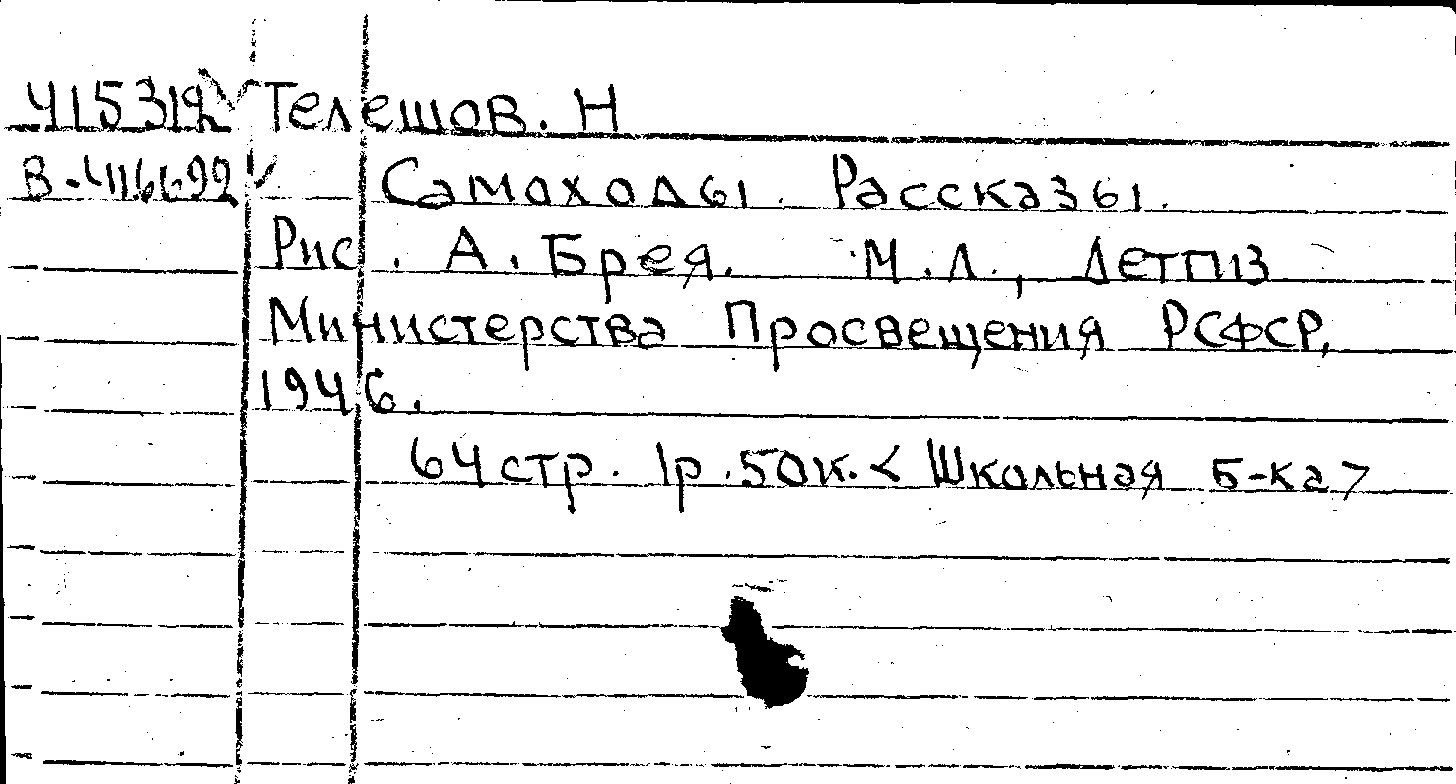 415312 Телешов. Н
В-416692 Самоходы. Рассказы.
Рис. А. Брея. М.Л., Детгиз
Министерства Просвещения РСФСР,
1946.
64 стр. 1р.50к. < Школьная Б-ка >